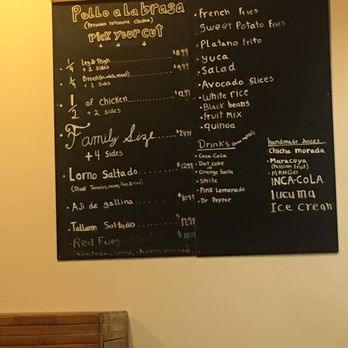 Pollo a la brasa
(Peruvian rotisserie chicken)
Pick your cut
1/4 Leg & thigh $8.99
+ 2 sides
1/4 Breast (all white meat) $9.99
+ 2 sides
1/2 of chicken
+ 2 sides
Family Size
+ 4 sides
Lomo Saltado
Aji de gallina
Tallarin Saltado
Red
French Fries
Sweet Potato Fries
Platano Frito
yuca
Salad
Avocado Slices
White rice
Black beans
Fruit MIX
quinoa
Drinks
Coca-Cola
Diet Coke
Orange Fanta
Sprite
Pink Lemonade
Dr Pepper
handmade Juices
Chicha morada
Maracuya
(Passion Fruit)
MANGO
INCA-COLA
lucuma
Ice cream